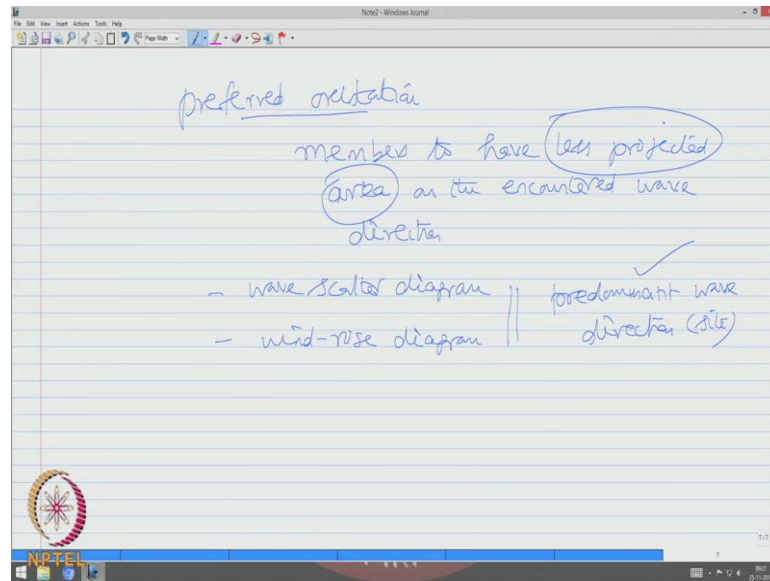 Note2 - Windows Journal
File Edit View Insert Actions Tools Help
Page Width
preferred orientation
member to have less projected
area on the encountered wave
direction
- wave scatter diagram || predominant wave
- wind-rose diagram direction (site)
7/7
7
NPTEL